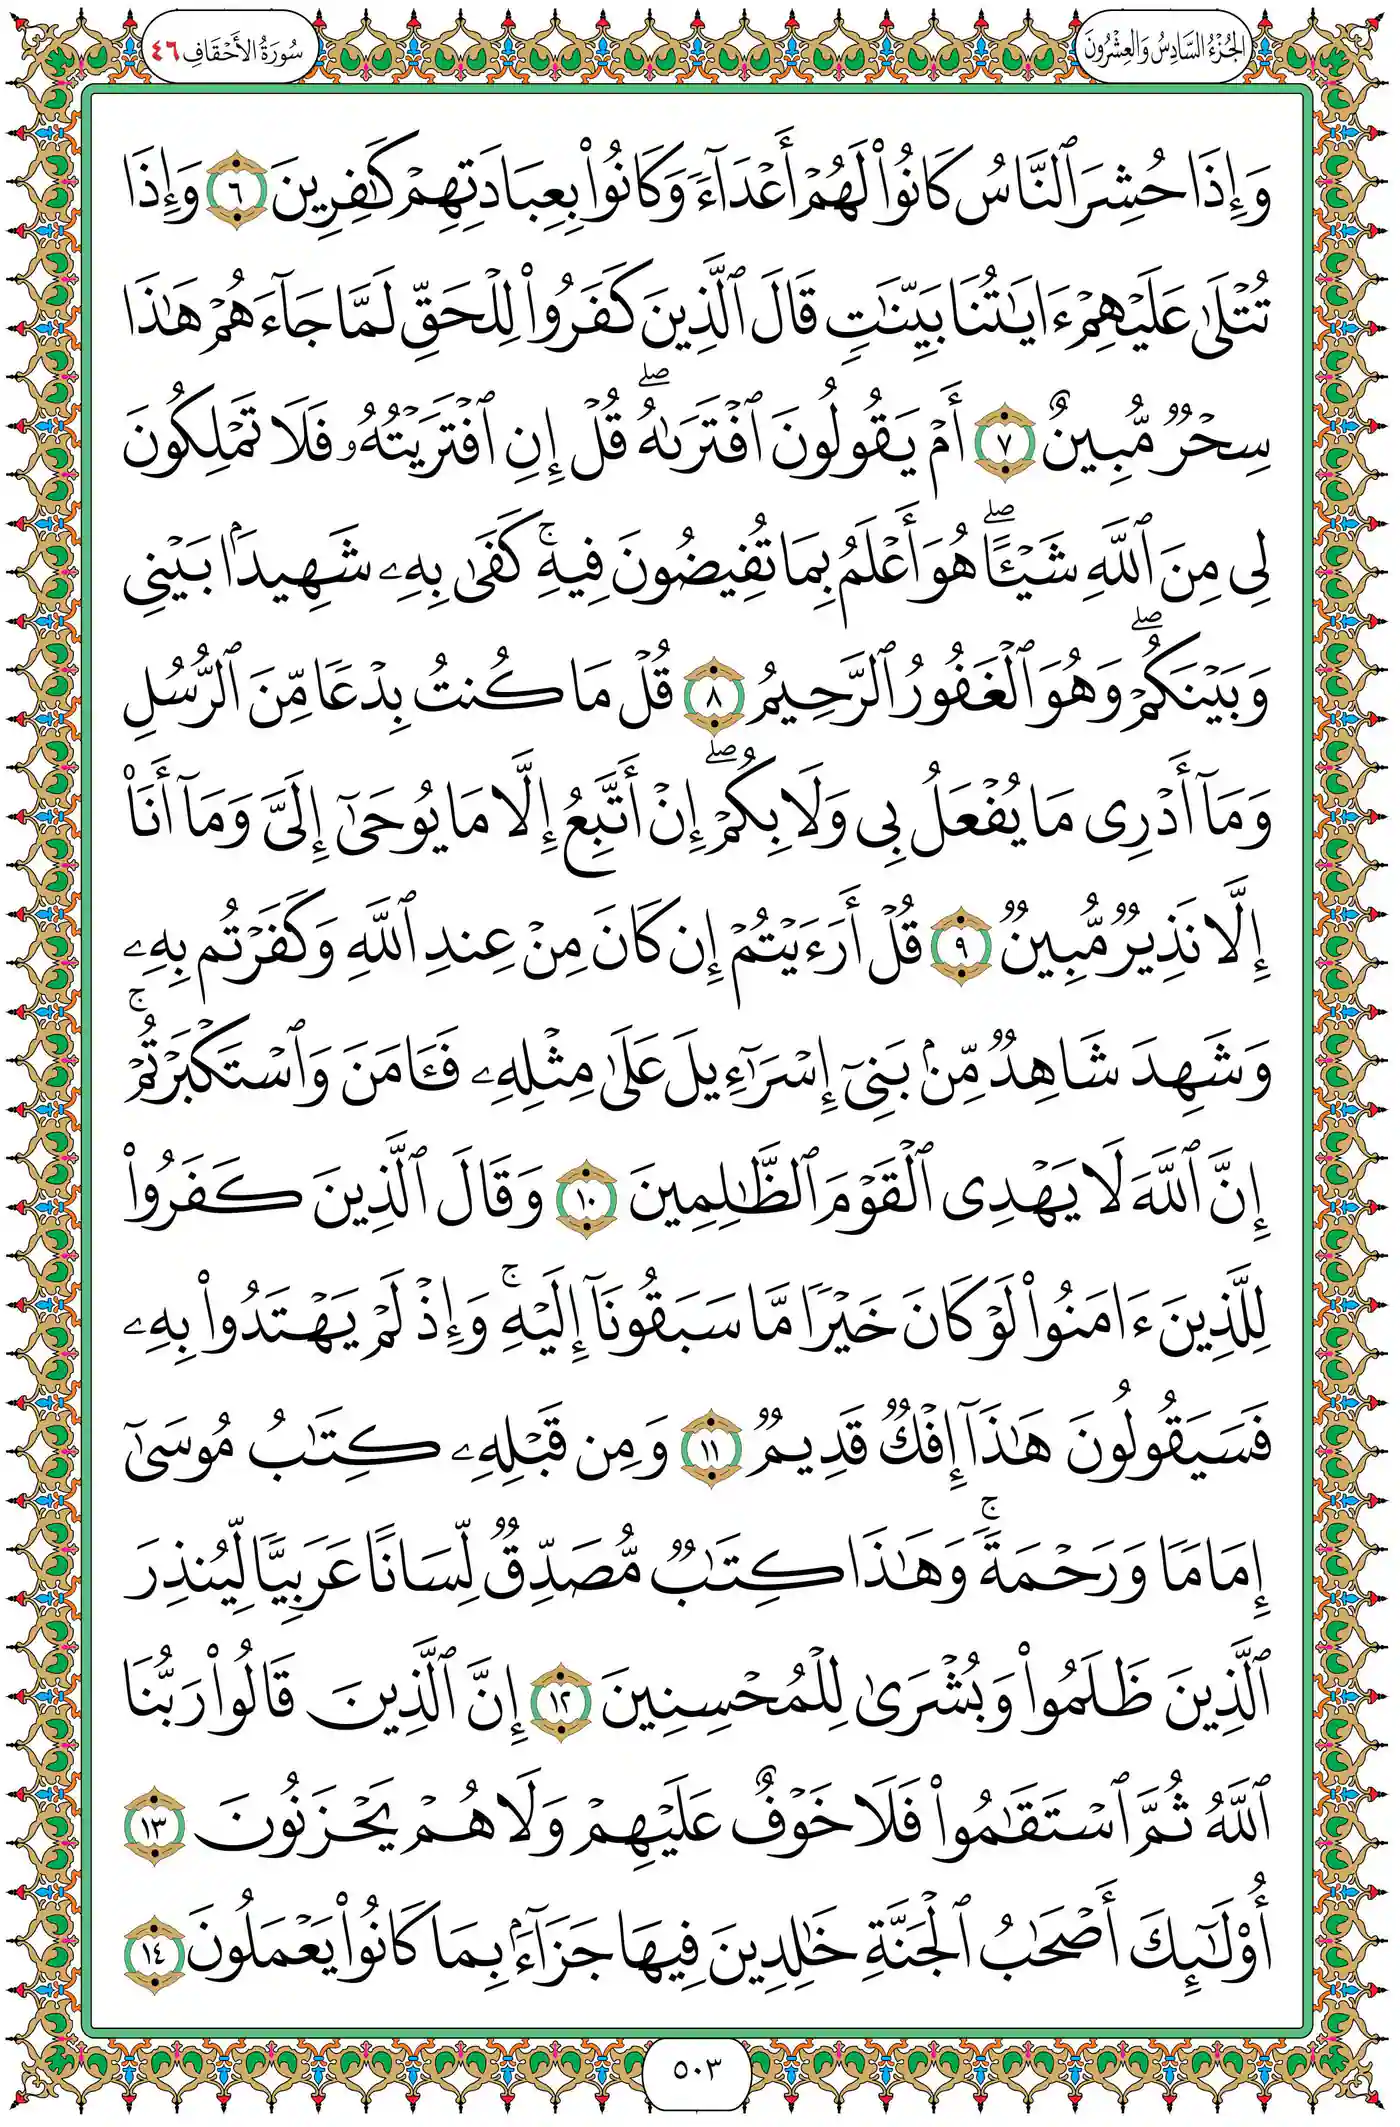 الجُزْءُ السَّادِسُ وَالعِشْرُونَ
سُورَةُ الأَحْقَافِ ٤٦
وَإِذَا حُشِرَ ٱلنَّاسُ كَانُوا۟ لَهُمْ أَعْدَآءً وَكَانُوا۟ بِعِبَادَتِهِمْ كَـٰفِرِينَ ٦ وَإِذَا
تُتْلَىٰ عَلَيْهِمْ ءَايَـٰتُنَا بَيِّنَـٰتٍ قَالَ ٱلَّذِينَ كَفَرُوا۟ لِلْحَقِّ لَمَّا جَآءَهُمْ هَـٰذَا
سِحْرٌ مُّبِينٌ ٧ أَمْ يَقُولُونَ ٱفْتَرَىٰهُ ۖ قُلْ إِنِ ٱفْتَرَيْتُهُۥ فَلَا تَمْلِكُونَ
لِى مِنَ ٱللَّهِ شَيْـًٔا ۖ هُوَ أَعْلَمُ بِمَا تُفِيضُونَ فِيهِ ۚ كَفَىٰ بِهِۦ شَهِيدًۢا بَيْنِى
وَبَيْنَكُمْ ۖ وَهُوَ ٱلْغَفُورُ ٱلرَّحِيمُ ٨ قُلْ مَا كُنتُ بِدْعًا مِّنَ ٱلرُّسُلِ
وَمَآ أَدْرِى مَا يُفْعَلُ بِى وَلَا بِكُمْ ۖ إِنْ أَتَّبِعُ إِلَّا مَا يُوحَىٰٓ إِلَىَّ وَمَآ أَنَا۠
إِلَّا نَذِيرٌ مُّبِينٌ ٩ قُلْ أَرَءَيْتُمْ إِن كَانَ مِنْ عِندِ ٱللَّهِ وَكَفَرْتُم بِهِۦ
وَشَهِدَ شَاهِدٌ مِّنۢ بَنِىٓ إِسْرَٰٓءِيلَ عَلَىٰ مِثْلِهِۦ فَـَٔامَنَ وَٱسْتَكْبَرْتُمْ ۚ
إِنَّ ٱللَّهَ لَا يَهْدِى ٱلْقَوْمَ ٱلظَّـٰلِمِينَ ١٠ وَقَالَ ٱلَّذِينَ كَفَرُوا۟
لِلَّذِينَ ءَامَنُوا۟ لَوْ كَانَ خَيْرًا مَّا سَبَقُونَآ إِلَيْهِ ۚ وَإِذْ لَمْ يَهْتَدُوا۟ بِهِۦ
فَسَيَقُولُونَ هَـٰذَآ إِفْكٌ قَدِيمٌ ١١ وَمِن قَبْلِهِۦ كِتَـٰبُ مُوسَىٰٓ
إِمَامًا وَرَحْمَةً ۚ وَهَـٰذَا كِتَـٰبٌ مُّصَدِّقٌ لِّسَانًا عَرَبِيًّا لِّيُنذِرَ
ٱلَّذِينَ ظَلَمُوا۟ وَبُشْرَىٰ لِلْمُحْسِنِينَ ١٢ إِنَّ ٱلَّذِينَ قَالُوا۟ رَبُّنَا
ٱللَّهُ ثُمَّ ٱسْتَقَـٰمُوا۟ فَلَا خَوْفٌ عَلَيْهِمْ وَلَا هُمْ يَحْزَنُونَ ١٣
أُو۟لَـٰٓئِكَ أَصْحَـٰبُ ٱلْجَنَّةِ خَـٰلِدِينَ فِيهَا جَزَآءًۢ بِمَا كَانُوا۟ يَعْمَلُونَ ١٤
٥٠٣